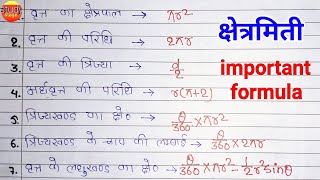 वृत्त का क्षेत्रफल → πr²
2. वृत्त की परिधि → 2πr
3. वृत्त की त्रिज्या → d/2
4. अर्धवृत्त की परिधि → r(π+2)
5. त्रिज्यखण्ड का क्षे० → θ/360 × πr²
6. त्रिज्यखण्ड के चाप की लम्बाई → θ/360 × 2πr
7. वृत्त के लघुखण्ड का क्षे० → θ/360 × πr² - 1/2 r² sinθ
क्षेत्रमिती
important
formula